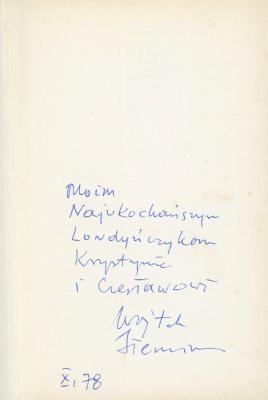 Moim
Najukochańszym
Londyńczykom
Krystynie
i Czesławowi
Wojtek
X. 78